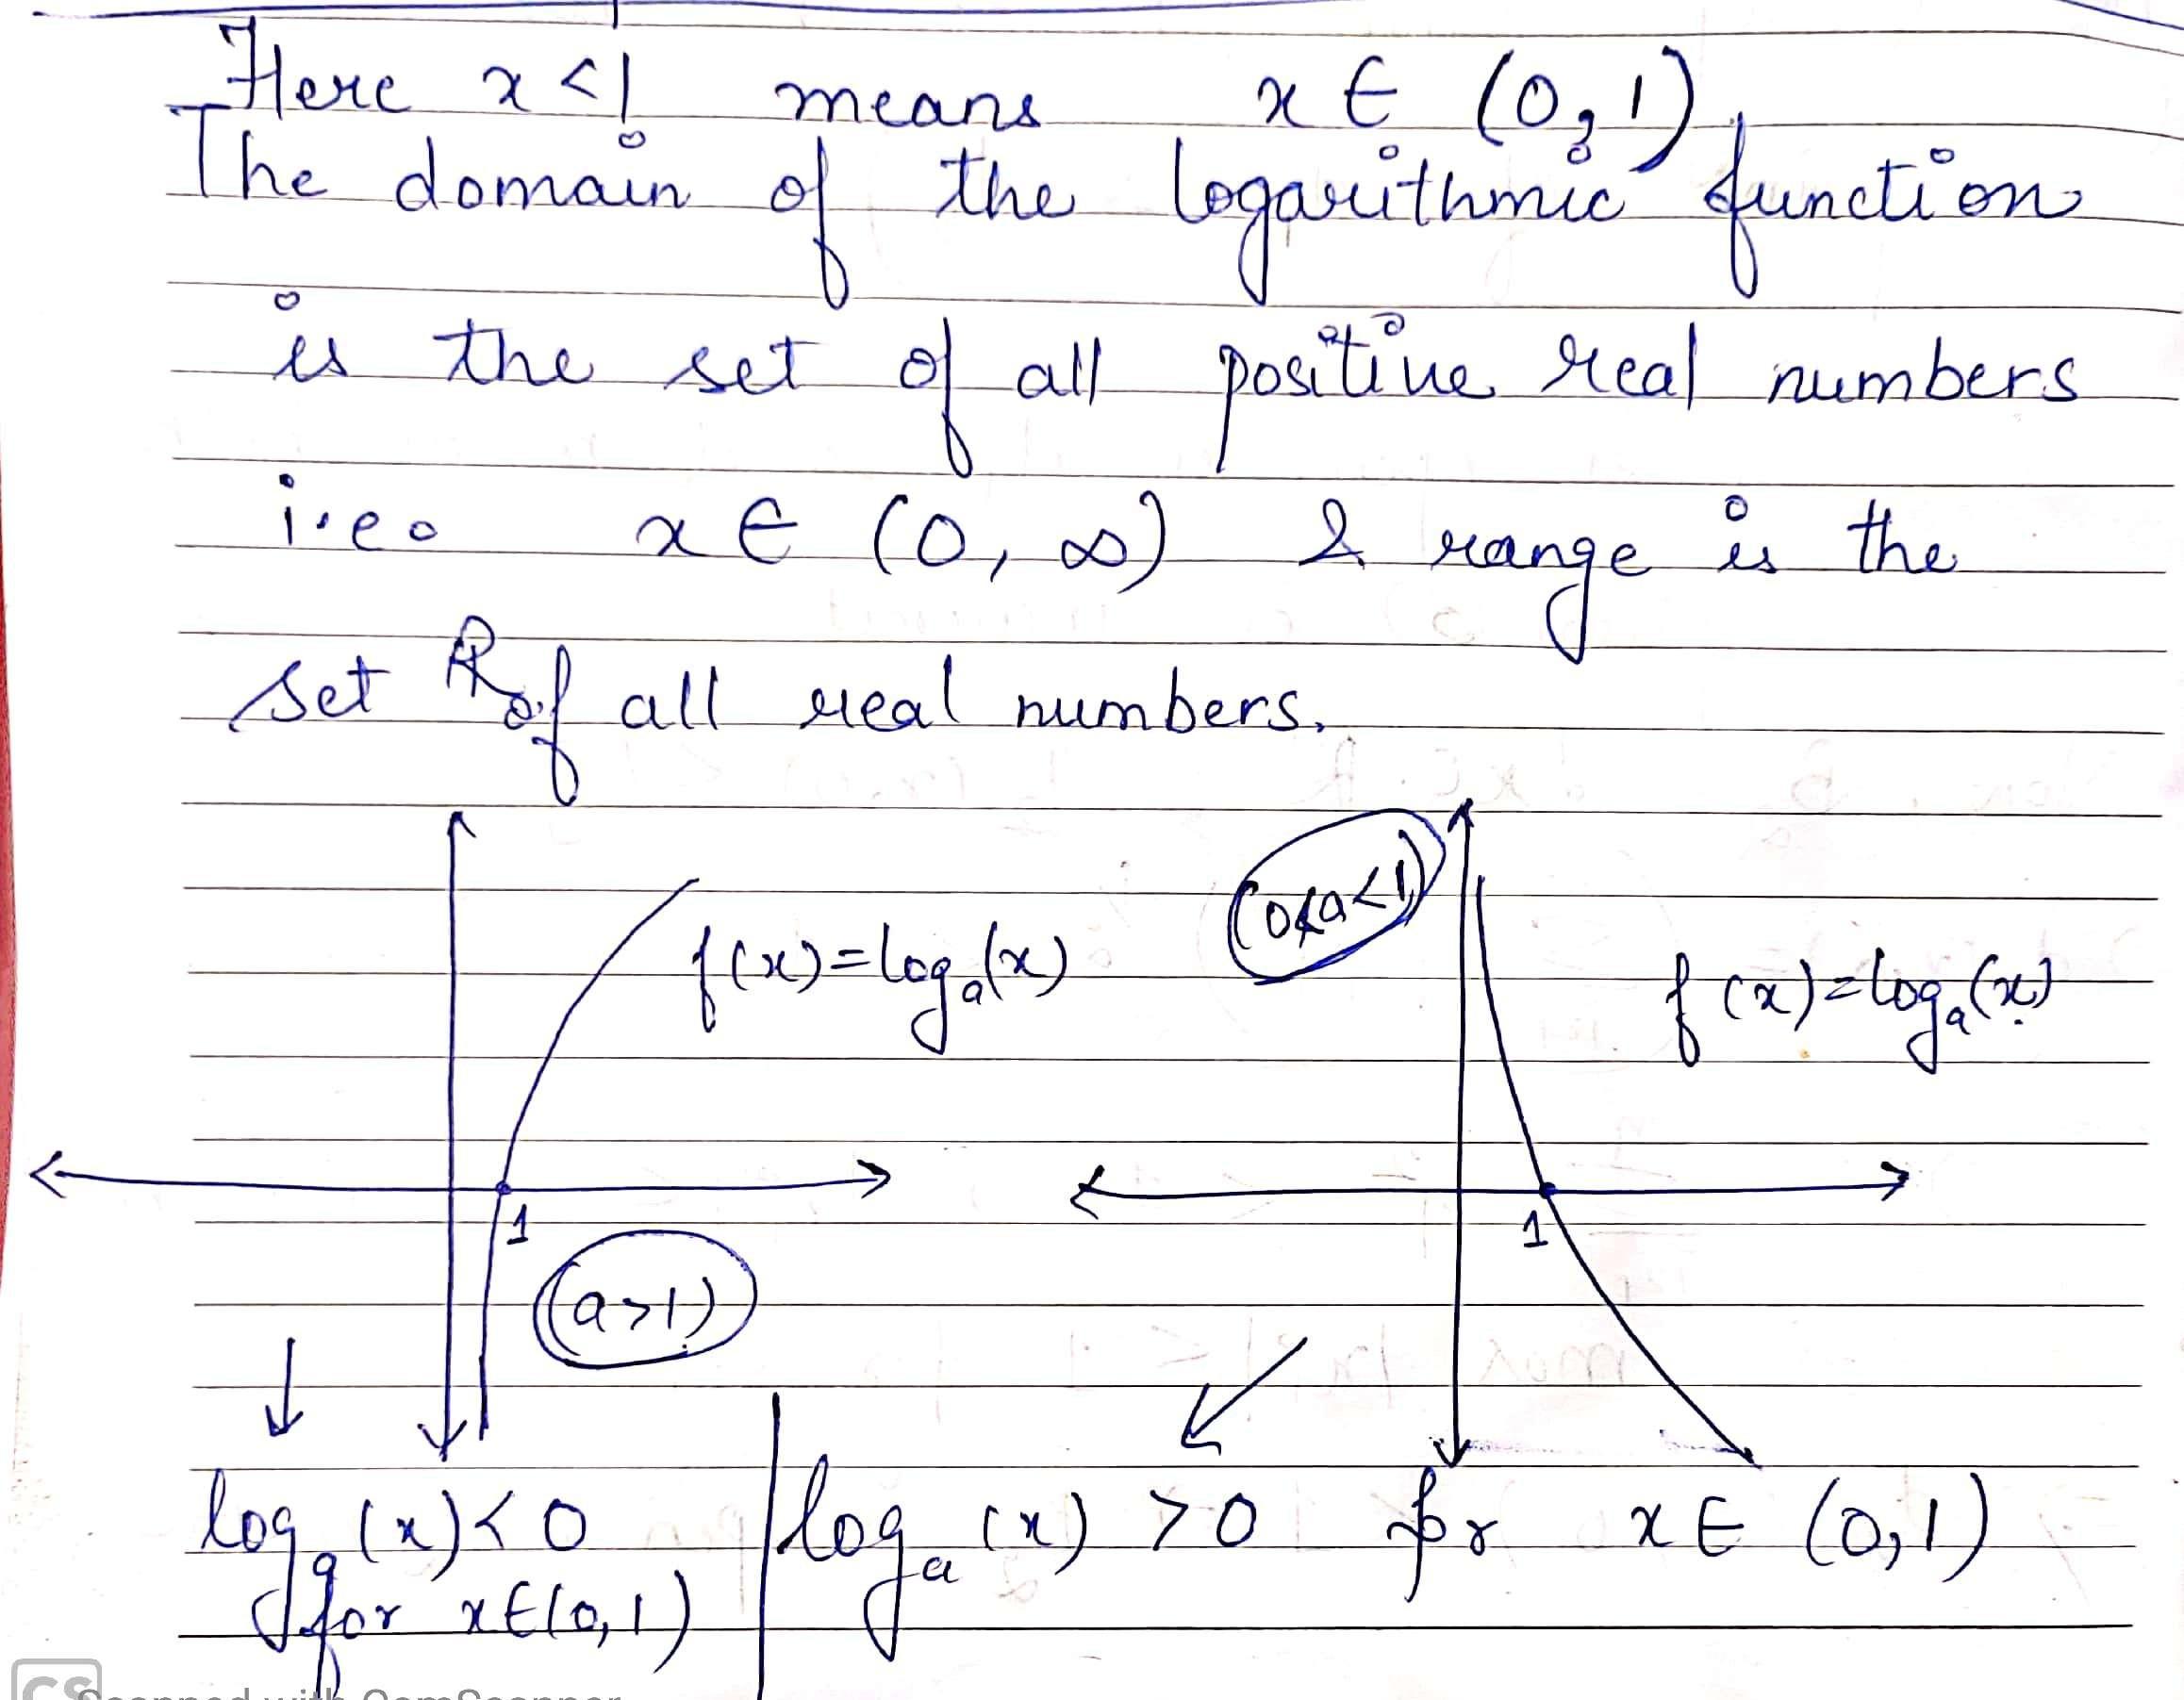 Here x<1 means x ∈ (0,1).
The domain of the logarithmic function
is the set of all positive real numbers
i.e. x ∈ (0, ∞) & range is the
set R of all real numbers.
(0<a<1)
f(x)=log_a(x)
f(x)=log_a(x)
1
1
(a>1)
log_a(x)<0
for x∈(0,1)
log_a(x) >0 for x∈ (0,1)
CS